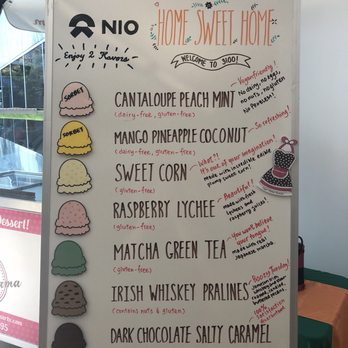 NIO
HOME SWEET HOME
Enjoy 2 flavors
WELCOME TO 3100!
SORBET
CANTALOUPE PEACH MINT
(dairy-free, gluten-free)
Vegan friendly!
No dairy, no eggs,
no nuts, no gluten
No Problem!
SORBET
MANGO PINEAPPLE COCONUT
(dairy-free, gluten-free)
So refreshing!
SWEET CORN
(gluten-free)
What?!
It's out of your imagination!
made with incredible edible
sweet corn!
RASPBERRY LYCHEE
(gluten-free)
Beautiful!
made with fresh
lychees and
raspberry
MATCHA GREEN TEA
(gluten-free)
You won't believe
your tongue!
made with
Japanese matcha.
IRISH WHISKEY PRALINES
(contains nuts & gluten)
Boozy Tuesday!
100%
satisfaction
DARK CHOCOLATE SALTY CARAMEL
Dessert!
ma
95